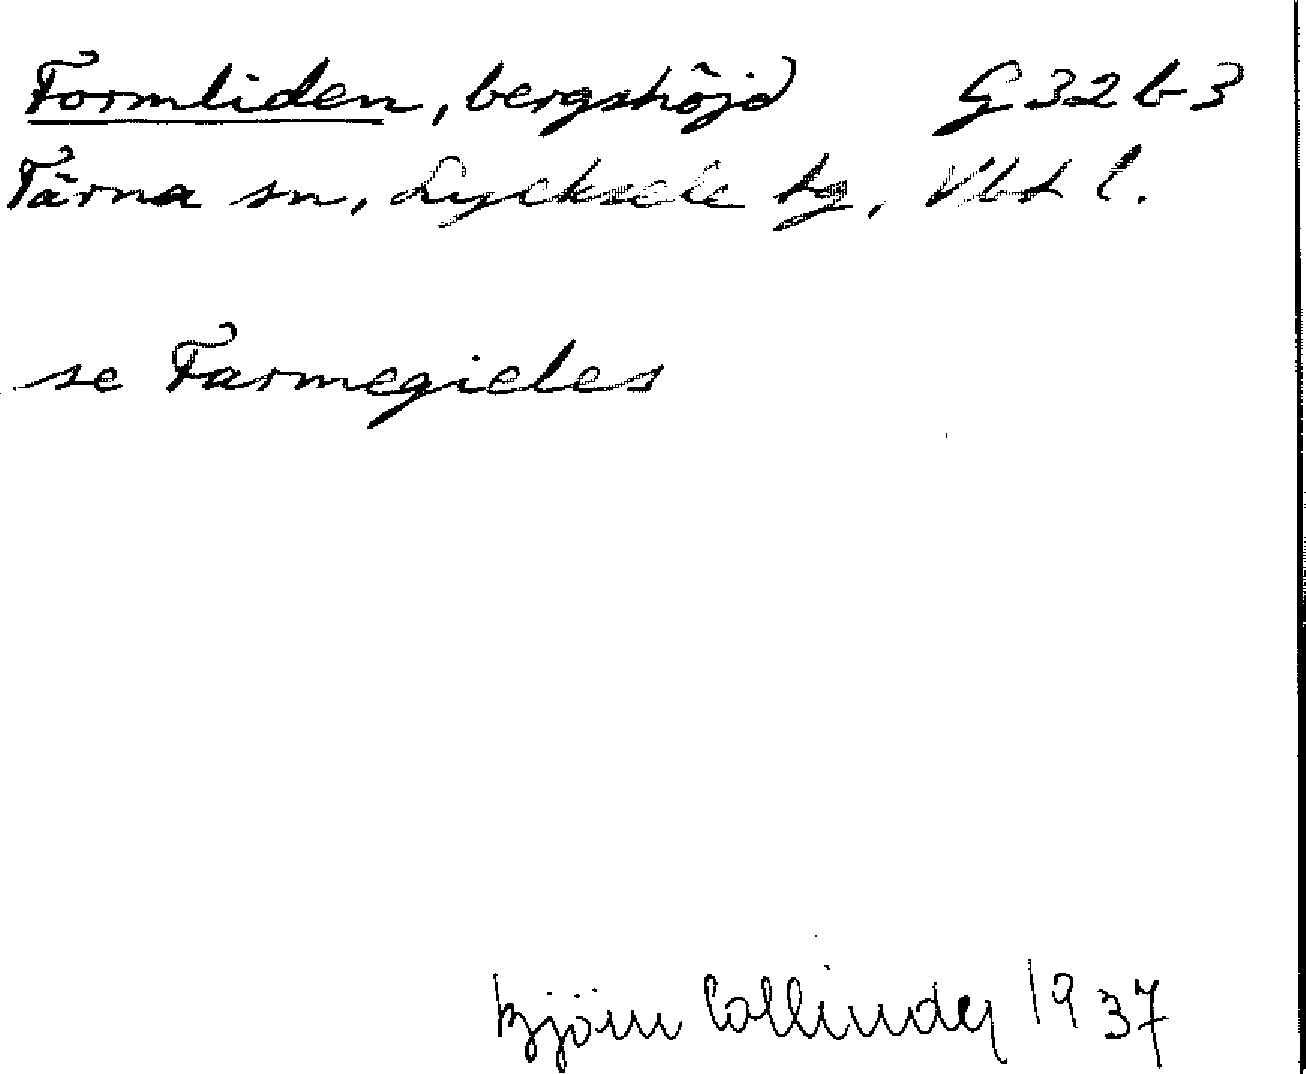 Formliden, bergshöjd G 32 b 3
Tärna sn, Lycksele lg, Vbt l.
se Farmegieles
Björn Collinder 1937